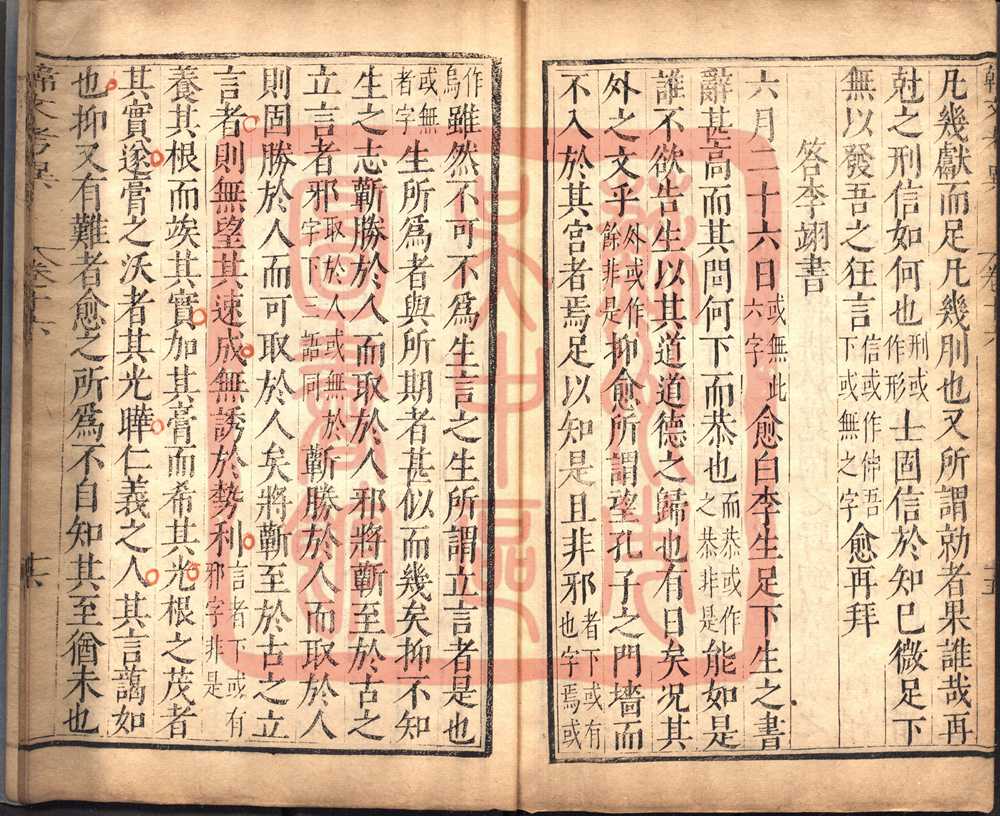 凡幾獻而足凡幾刖也又所謂勍者果誰哉再
尅之刑信如何也刑或作形士固信於知已微足下
無以發吾之狂言信或作伸吾下或無之字愈再拜
答李翊書
六月二十六日或無此六字愈白李生足下生之書
辭甚高而其問何下而恭也而恭或作之恭非是能如是
誰不欲告生以其道道德之歸也有日矣况其
外之文乎外或作餘非是抑愈所謂望孔子之門墻而
不入於其宮者焉足以知是且非邪者下或有也字焉或
作烏雖然不可不爲生言之生所謂立言者是也
或無者字生所爲者與所期者甚似而幾矣抑不知
生之志蘄勝於人而取於人邪將蘄至於古之
立言者邪取於人或無於字下三語同蘄勝於人而取於人
則固勝於人而可取於人矣將蘄至於古之立
言者則無望其速成無誘於勢利言者下或有邪字非是
養其根而竢其實加其膏而希其光根之茂者
其實遂膏之沃者其光曄仁義之人其言藹如
也抑又有難者愈之所爲不自知其至猶未也
韓文考異
卷十六